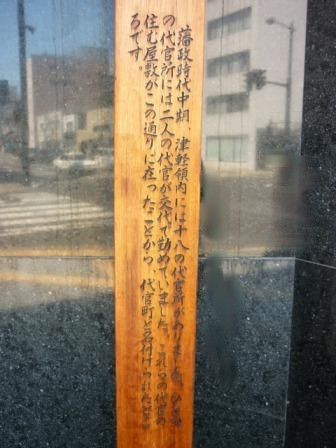 藩政時代中期、津軽領内には十八の代官所がありました。ひとつ
の代官所には二人の代官が交代で勤めていました。これらの代官の
住む屋敷がこの通りに在ったことから、代官町と名付けられたので
るです。